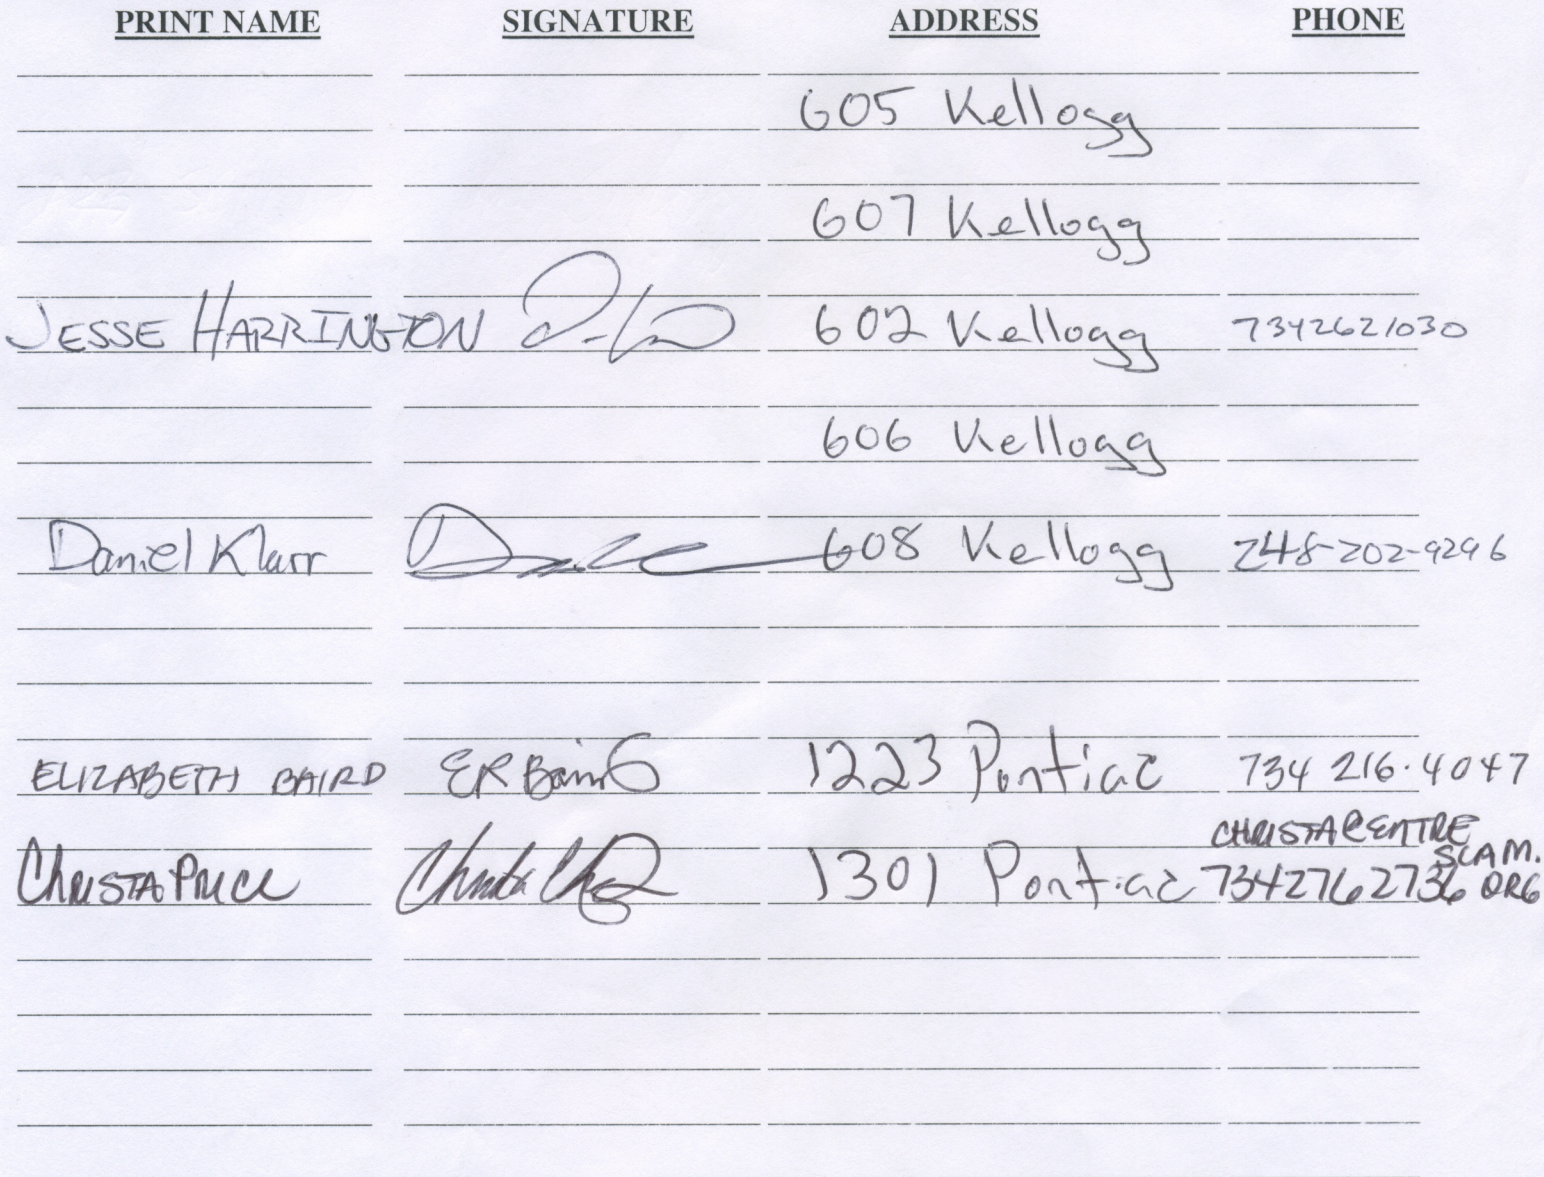 PRINT NAME SIGNATURE ADDRESS PHONE
605 Kellogg
607 Kellogg
JESSE HARRINGTON 602 Kellogg 7342621030
606 Kellogg
Daniel Klarr 608 Kellogg 248-202-9296
ELIZABETH BAIRD ER Baird 1223 Pontiac 734 216.4047
CHRISTA@ENTRE
SCAM.
CHRISTA PRICE 1301 Pontiac 7342762736 ORG